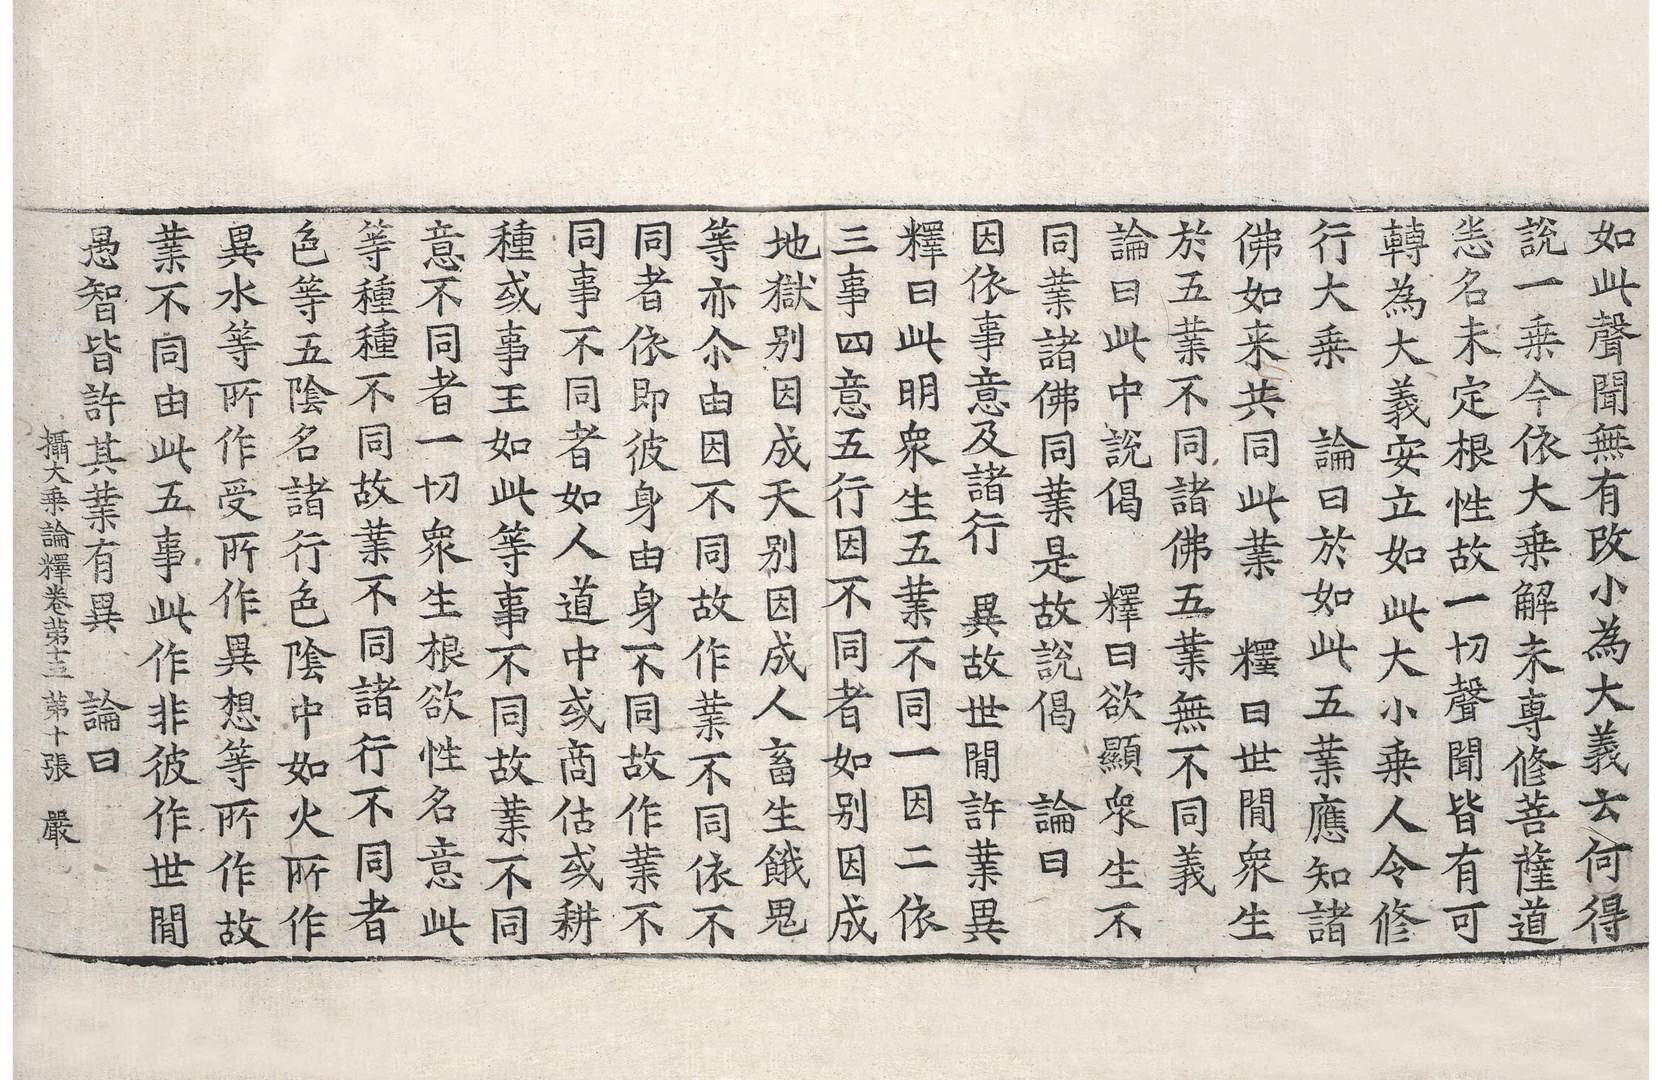 如此聲聞無有改小為大義云何得
說一乗今依大乗解未專修菩薩道
悉名未定根性故一切聲聞皆有可
轉為大義安立如此大小乗人令修
行大乗　論曰於如此五業應知諸
佛如来共同此業　釋曰世間衆生
於五業不同諸佛五業無不同義
論曰此中說偈　釋曰欲顯衆生不
同業諸佛同業是故說偈　論曰
因依事意及諸行　異故世間許業異
釋曰此明衆生五業不同一因二依
三事四意五行因不同者如別因成
地獄別因成天別因成人畜生餓鬼
等亦尒由因不同故作業不同依不
同者依即彼身由身不同故作業不
同事不同者如人道中或商估或耕
種或事王如此等事不同故業不同
意不同者一切衆生根欲性名意此
等種種不同故業不同諸行不同者
色等五陰名諸行色陰中如火所作
異水等所作受所作異想等所作故
業不同由此五事此作非彼作世間
愚智皆許其業有異　論曰
攝大乗論釋卷第十五　第十張　嚴